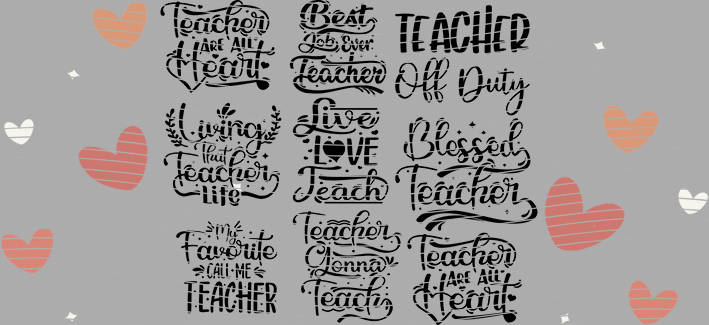 Teacher
ARE ALL
Heart
Best
Job Ever
Teacher
TEACHER
Off Duty
Living
That
Teacher
Life
Live
LOVE
Teach
Blessed
Teacher
My
Favorite
CALL ME
TEACHER
Teacher
Gonna
Teach
Teacher
ARE ALL
Heart